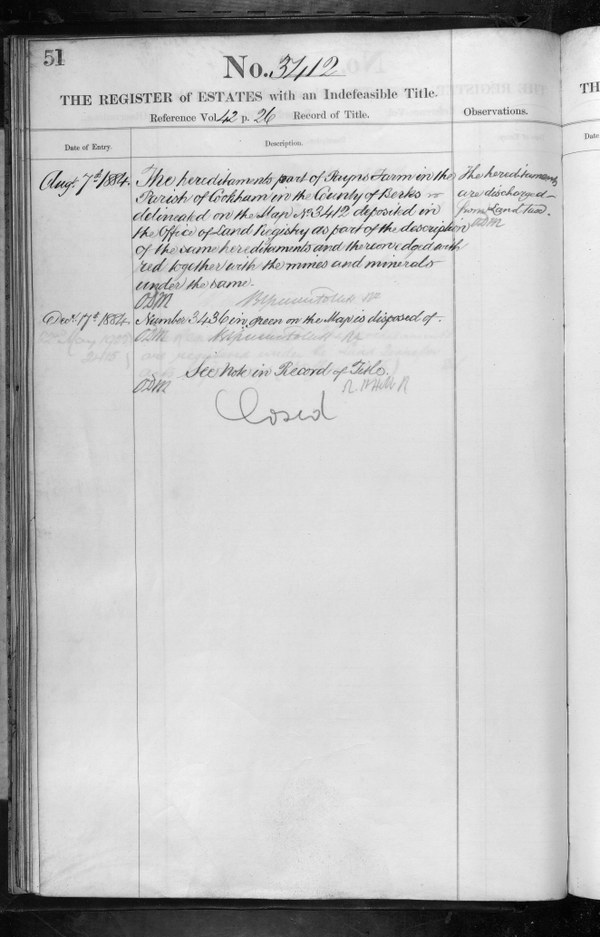 51
No. 3412
THE REGISTER of ESTATES with an Indefeasible Title.
Reference Vol. 42 p. 26 Record of Title.
Observations.
Date of Entry.
Description.
Augt. 7th 1884.
The hereditaments part of Payns Farm in the
Parish of Cookham in the County of Berks
delineated on the Map No 3412 deposited in
the Office of Land Registry as part of the description
of the same hereditaments and thereon edged with
red together with the mines and minerals
under the same.
The hereditaments
are discharged
from Land tax.
Decr. 17th 1884.
Number 3436 in green on the Map is disposed of.
See Note in Record of Title.
Closed
TH
Date